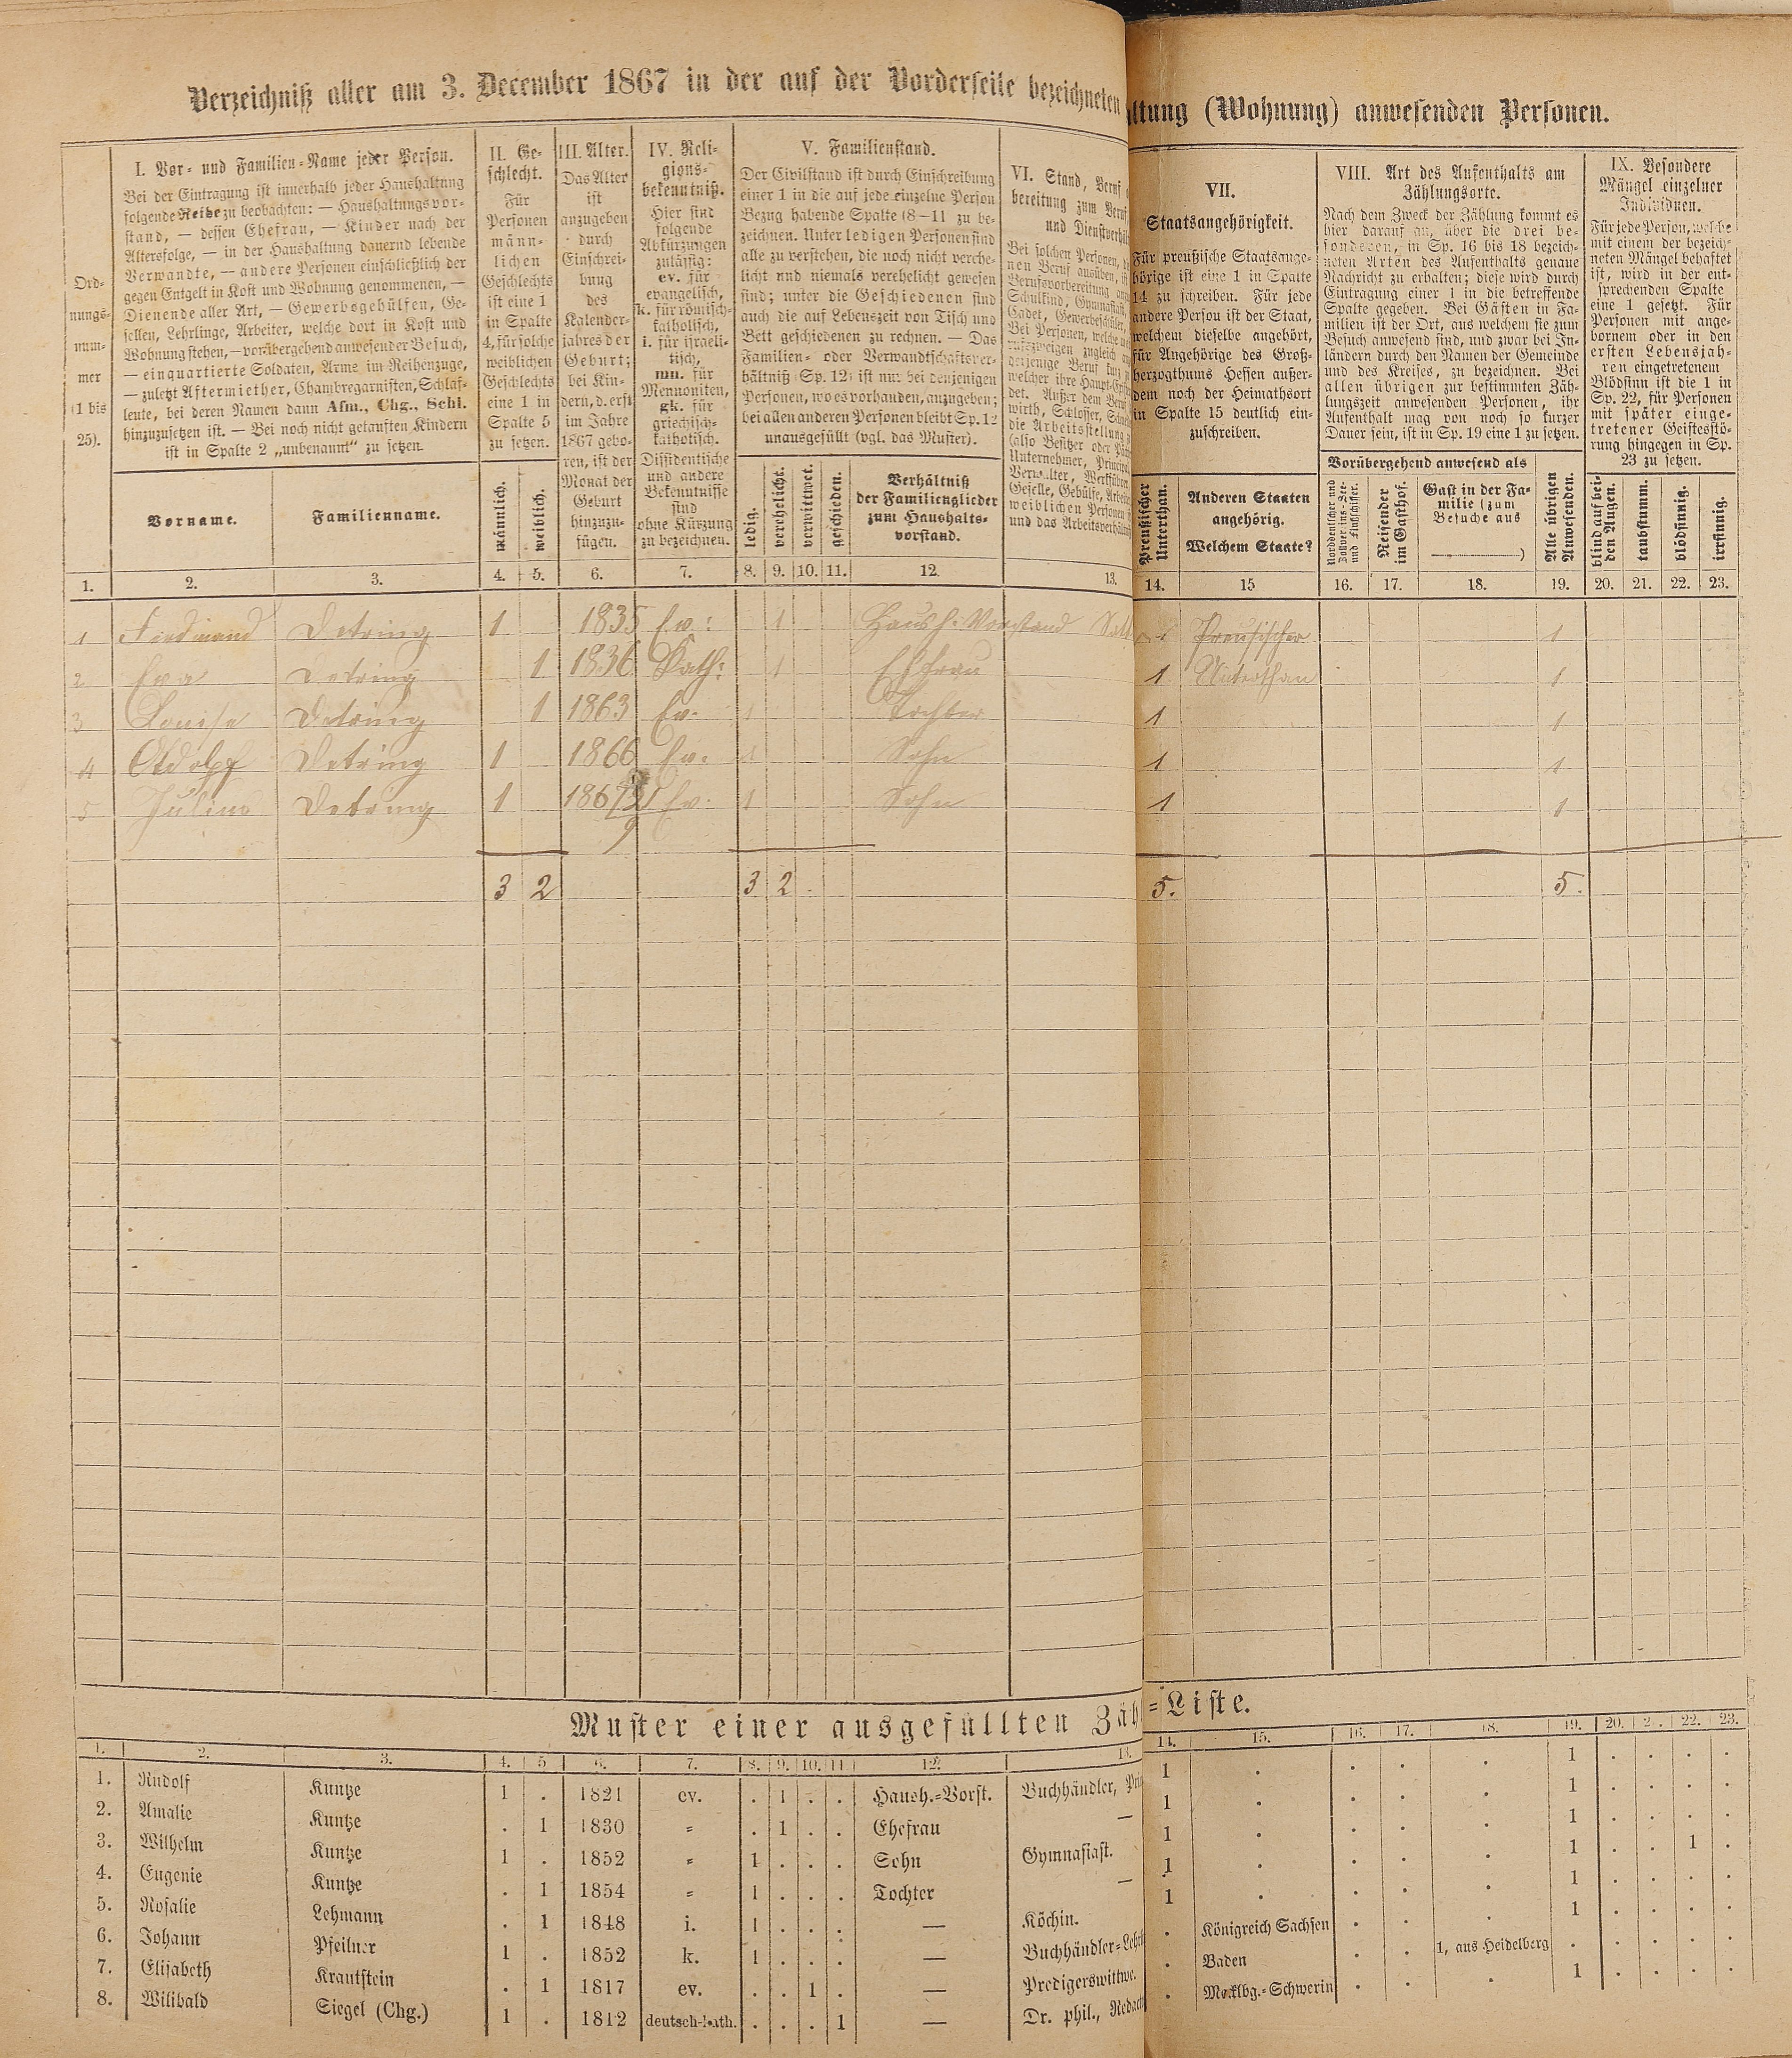 Verzeichniß aller am 3. December 1867 in der auf der Vorderseite bezeichneten
ltung (Wohnung) anwesenden Personen.
Ord-
nungs-
num-
mer
(1 bis
25).
I. Vor- und Familien-Name jeder Person.
Bei der Eintragung ist innerhalb jeder Haushaltung
folgende Reihe zu beobachten: — Haushaltungsvor-
stand, — dessen Ehefrau, — Kinder nach der
Altersfolge, — in der Haushaltung dauernd lebende
Verwandte, — andere Personen einschließlich der
gegen Entgelt in Kost und Wohnung genommenen, —
Dienende aller Art, — Gewerbsgehülfen, Ge-
sellen, Lehrlinge, Arbeiter, welche dort in Kost und
Wohnung stehen, — vorübergehend anwesender Besuch,
— einquartierte Soldaten, Arme im Reihenzuge,
— zuletzt Aftermiether, Chambregarnisten, Schlaf-
leute, bei deren Namen dann Afm., Chg., Schl.
hinzuzusetzen ist. — Bei noch nicht getauften Kindern
ist in Spalte 2 „unbenannt“ zu setzen.
Vorname.
Familienname.
II. Ge-
schlecht.
Für
Personen
männ-
lichen
Geschlechts
ist eine 1
in Spalte
4, für solche
weiblichen
Geschlechts
eine 1 in
Spalte 5
zu setzen.
männlich.
weiblich.
III. Alter.
Das Alter
ist
anzugeben
durch
Einschrei-
bung
des
Kalender-
jahres der
Geburt;
bei Kin-
dern, d. erst
im Jahre
1867 gebo-
ren, ist der
Monat der
Geburt
hinzuzu-
fügen.
IV. Reli-
gions-
bekenntniß.
Hier sind
folgende
Abkürzungen
zulässig:
ev. für
evangelisch,
k. für römisch-
katholisch,
i. für israeli-
tisch,
mn. für
Mennoniten,
gk. für
griechisch-
katholisch.
Dissidentische
und andere
Bekenntnisse
sind
ohne Kürzung
zu bezeichnen.
V. Familienstand.
Der Civilstand ist durch Einschreibung
einer 1 in die auf jede einzelne Person
Bezug habende Spalte (8—11 zu be-
zeichnen. Unter ledigen Personen sind
alle zu verstehen, die noch nicht verehe-
licht und niemals verehelicht gewesen
sind; unter die Geschiedenen sind
auch die auf Lebenszeit von Tisch und
Bett geschiedenen zu rechnen. — Das
Familien- oder Verwandtschaftsver-
hältniß (Sp. 12) ist nur bei denjenigen
Personen, wo es vorhanden, anzugeben;
bei allen anderen Personen bleibt Sp. 12
unausgefüllt (vgl. das Muster).
ledig.
verehelicht.
verwittwet.
geschieden.
Verhältniß
der Familienglieder
zum Haushalts-
vorstand.
VI. Stand, Beruf
bereitung zum Beruf
und Dienstverhält
Bei solchen Personen,
nen Beruf ausüben,
Berufsvorbereitung
Schulkind, Gymnasiast,
Cadet, Gewerbeschüler,
Bei Personen, welche
rufszweigen zugleich
derjenige Beruf
welcher ihre Haupt-
det. Außer dem Beruf
wirth, Schlosser,
die Arbeitsstellung
(also Besitzer oder
Unternehmer, Principal
Verwalter, Werkführer
Geselle, Gehülfe,
weiblichen Personen
und das Arbeitsverhältniß
VII.
Staatsangehörigkeit.
Für preußische Staatsange-
hörige ist eine 1 in Spalte
14 zu schreiben. Für jede
andere Person ist der Staat,
welchem dieselbe angehört,
für Angehörige des Groß-
herzogthums Hessen außer-
dem noch der Heimathsort
in Spalte 15 deutlich ein-
zuschreiben.
Preußischer
Unterthan.
Anderen Staaten
angehörig.
Welchem Staate?
VIII. Art des Aufenthalts am
Zählungsorte.
Nach dem Zweck der Zählung kommt es
hier darauf an, über die drei be-
sonderen, in Sp. 16 bis 18 bezeich-
neten Arten des Aufenthalts genaue
Nachricht zu erhalten; diese wird durch
Eintragung einer 1 in die betreffende
Spalte gegeben. Bei Gästen in Fa-
milien ist der Ort, aus welchem sie zum
Besuch anwesend sind, und zwar bei In-
ländern durch den Namen der Gemeinde
und des Kreises, zu bezeichnen. Bei
allen übrigen zur bestimmten Zäh-
lungszeit anwesenden Personen, ihr
Aufenthalt mag von noch so kurzer
Dauer sein, ist in Sp. 19 eine 1 zu setzen.
Vorübergehend anwesend als
Norddeutscher und
Zollver ins-See-
und Flußschiffer.
Reisender
im Gasthof.
Gast in der Fa-
milie (zum
Besuche aus
)
Alle übrigen
Anwesenden.
IX. Besondere
Mängel einzelner
Individuen.
Für jede Person, welche
mit einem der bezeich-
neten Mängel behaftet
ist, wird in der ent-
sprechenden Spalte
eine 1 gesetzt. Für
Personen mit ange-
bornem oder in den
ersten Lebensjah-
ren eingetretenem
Blödsinn ist die 1 in
Sp. 22, für Personen
mit später einge-
tretener Geistesstö-
rung hingegen in Sp.
23 zu setzen.
blind auf bei-
den Augen.
taubstumm.
blödsinnig.
irrsinnig.
1. 2. 3. 4. 5. 6. 7. 8. 9. 10. 11. 12. 13. 14. 15 16. 17. 18. 19. 20. 21. 22. 23.
1 Ferdinand Detring 1 1835 Ev: 1 Haush.-Vorstand 1 Preusischer 1
2 Eva Detring 1 1836 Kath: 1 Ehfrau 1 Unterthan 1
3 Louise Detring 1 1863 Ev. 1 Tochter 1 1
4 Adolpf Detring 1 1866 Ev. 1 Sohn 1 1
5 Julius Detring 1 1867 21/9 Ev. 1 Sohn 1 1
3 2 3 2 5. 5.
Muster einer ausgefüllten Zäh=Liste.
1. 2. 3. 4. 5. 6. 7. 8. 9. 10. 11. 12. 13. 14. 15. 16. 17. 18. 19. 20. 2. 22. 23.
1. Rudolf Kuntze 1 . 1821 ev. . 1 . . Haush.-Vorst. Buchhändler, Pri 1 . . . . 1 . . . .
2. Amalie Kuntze . 1 1830 = . 1 . . Ehefrau — 1 . . . . 1 . . . .
3. Wilhelm Kuntze 1 . 1852 = 1 . . . Sohn Gymnasiast. 1 . . . . 1 . . . .
4. Eugenie Kuntze . 1 1854 = 1 . . . Tochter — 1 . . . . 1 . . 1 .
5. Rosalie Lehmann . 1 1848 i. 1 . . . — Köchin. 1 . . . . 1 . . . .
6. Johann Pfeilner 1 . 1852 k. 1 . . . — Buchhändler-Lehrl . Königreich Sachsen . . . 1 . . . .
7. Elisabeth Krautstein . 1 1817 ev. . . 1 . — Predigerswittwe. . Baden . . 1, aus Heidelberg . . . . .
8. Wilibald Siegel (Chg.) 1 . 1812 deutsch-kath. . . . 1 — Dr. phil., Redact . Mecklbg.-Schwerin . . . 1 . . . .